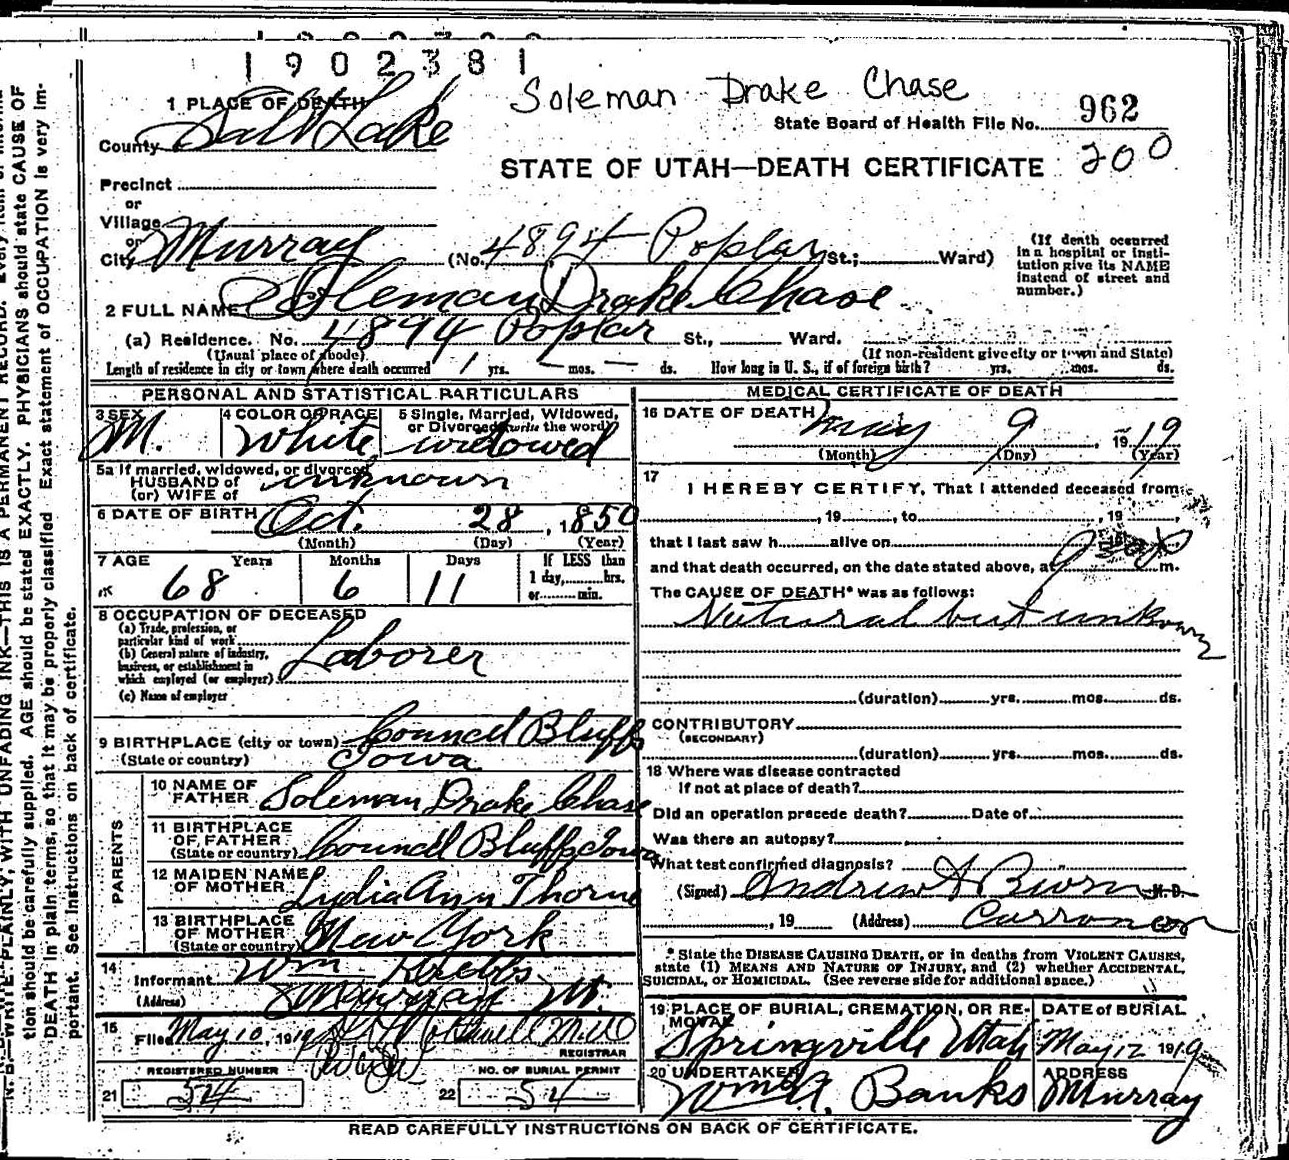 1902381
Soleman Drake Chase
1 PLACE OF DEATH
State Board of Health File No. 962
County Salt Lake
STATE OF UTAH—DEATH CERTIFICATE 200
Precinct
or
Village
or
City Murray (No. 4894 Poplar St.; Ward)
(If death occurred in a hospital or institution give its NAME instead of street and number.)
2 FULL NAME Soleman Drake Chase
(a) Residence. No. 4894 Poplar St., Ward.
(Usual place of abode) (If non-resident give city or town and State)
Length of residence in city or town where death occurred 1 yrs. — mos. — ds. How long in U. S., if of foreign birth? yrs. mos. ds.
PERSONAL AND STATISTICAL PARTICULARS
3 SEX M.
4 COLOR OR RACE White
5 Single, Married, Widowed, or Divorced (write the word) widowed
5a If married, widowed, or divorced
HUSBAND of
(or) WIFE of unknown
6 DATE OF BIRTH Oct. 28, 1850
(Month) (Day) (Year)
7 AGE Years Months Days If LESS than
68 6 11 1 day, hrs.
or min.
8 OCCUPATION OF DECEASED
(a) Trade, profession, or
particular kind of work Laborer
(b) General nature of industry,
business, or establishment in
which employed (or employer)
(c) Name of employer
9 BIRTHPLACE (city or town) Council Bluffs
(State or country) Iowa
PARENTS
10 NAME OF FATHER Soleman Drake Chase
11 BIRTHPLACE OF FATHER (State or country) Council Bluffs Iowa
12 MAIDEN NAME OF MOTHER Lydia Ann Thorne
13 BIRTHPLACE OF MOTHER (State or country) New York
14 Informant Wm Krebbs
(Address) Murray Ut.
15 Filed May 10, 1919 M.D.
REGISTRAR
REGISTERED NUMBER NO. OF BURIAL PERMIT
21 54 22 54
MEDICAL CERTIFICATE OF DEATH
16 DATE OF DEATH May 9, 1919
(Month) (Day) (Year)
17 I HEREBY CERTIFY, That I attended deceased from
, 19, to , 19
that I last saw h alive on
and that death occurred, on the date stated above, at m.
The CAUSE OF DEATH* was as follows:
Natural but unknown
(duration) yrs. mos. ds.
CONTRIBUTORY
(SECONDARY)
(duration) yrs. mos. ds.
18 Where was disease contracted
if not at place of death?
Did an operation precede death? Date of
Was there an autopsy?
What test confirmed diagnosis?
(Signed) Andrew M.D.
, 19 (Address)
* State the DISEASE CAUSING DEATH, or in deaths from VIOLENT CAUSES,
state (1) MEANS AND NATURE OF INJURY, and (2) whether ACCIDENTAL,
SUICIDAL, or HOMICIDAL. (See reverse side for additional space.)
19 PLACE OF BURIAL, CREMATION, OR REMOVAL DATE of BURIAL
Springville Utah May 12 1919
20 UNDERTAKER ADDRESS
Banks Murray
READ CAREFULLY INSTRUCTIONS ON BACK OF CERTIFICATE.
WRITE PLAINLY, WITH UNFADING INK—THIS IS A PERMANENT RECORD.
tion should be carefully supplied. AGE should be stated EXACTLY. PHYSICIANS should state CAUSE OF
DEATH in plain terms, so that it may be properly classified. Exact statement of OCCUPATION is very im-
portant. See instructions on back of certificate.